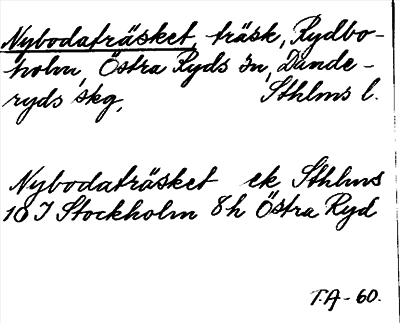 Nybodaträsket, träsk, Rydbo-
holm, Östra Ryds sn, Dande-
ryds skg, Sthlms l.
Nybodaträsket ek Sthlms
10 I Stockholm 8h Östra Ryd
T.A-60.